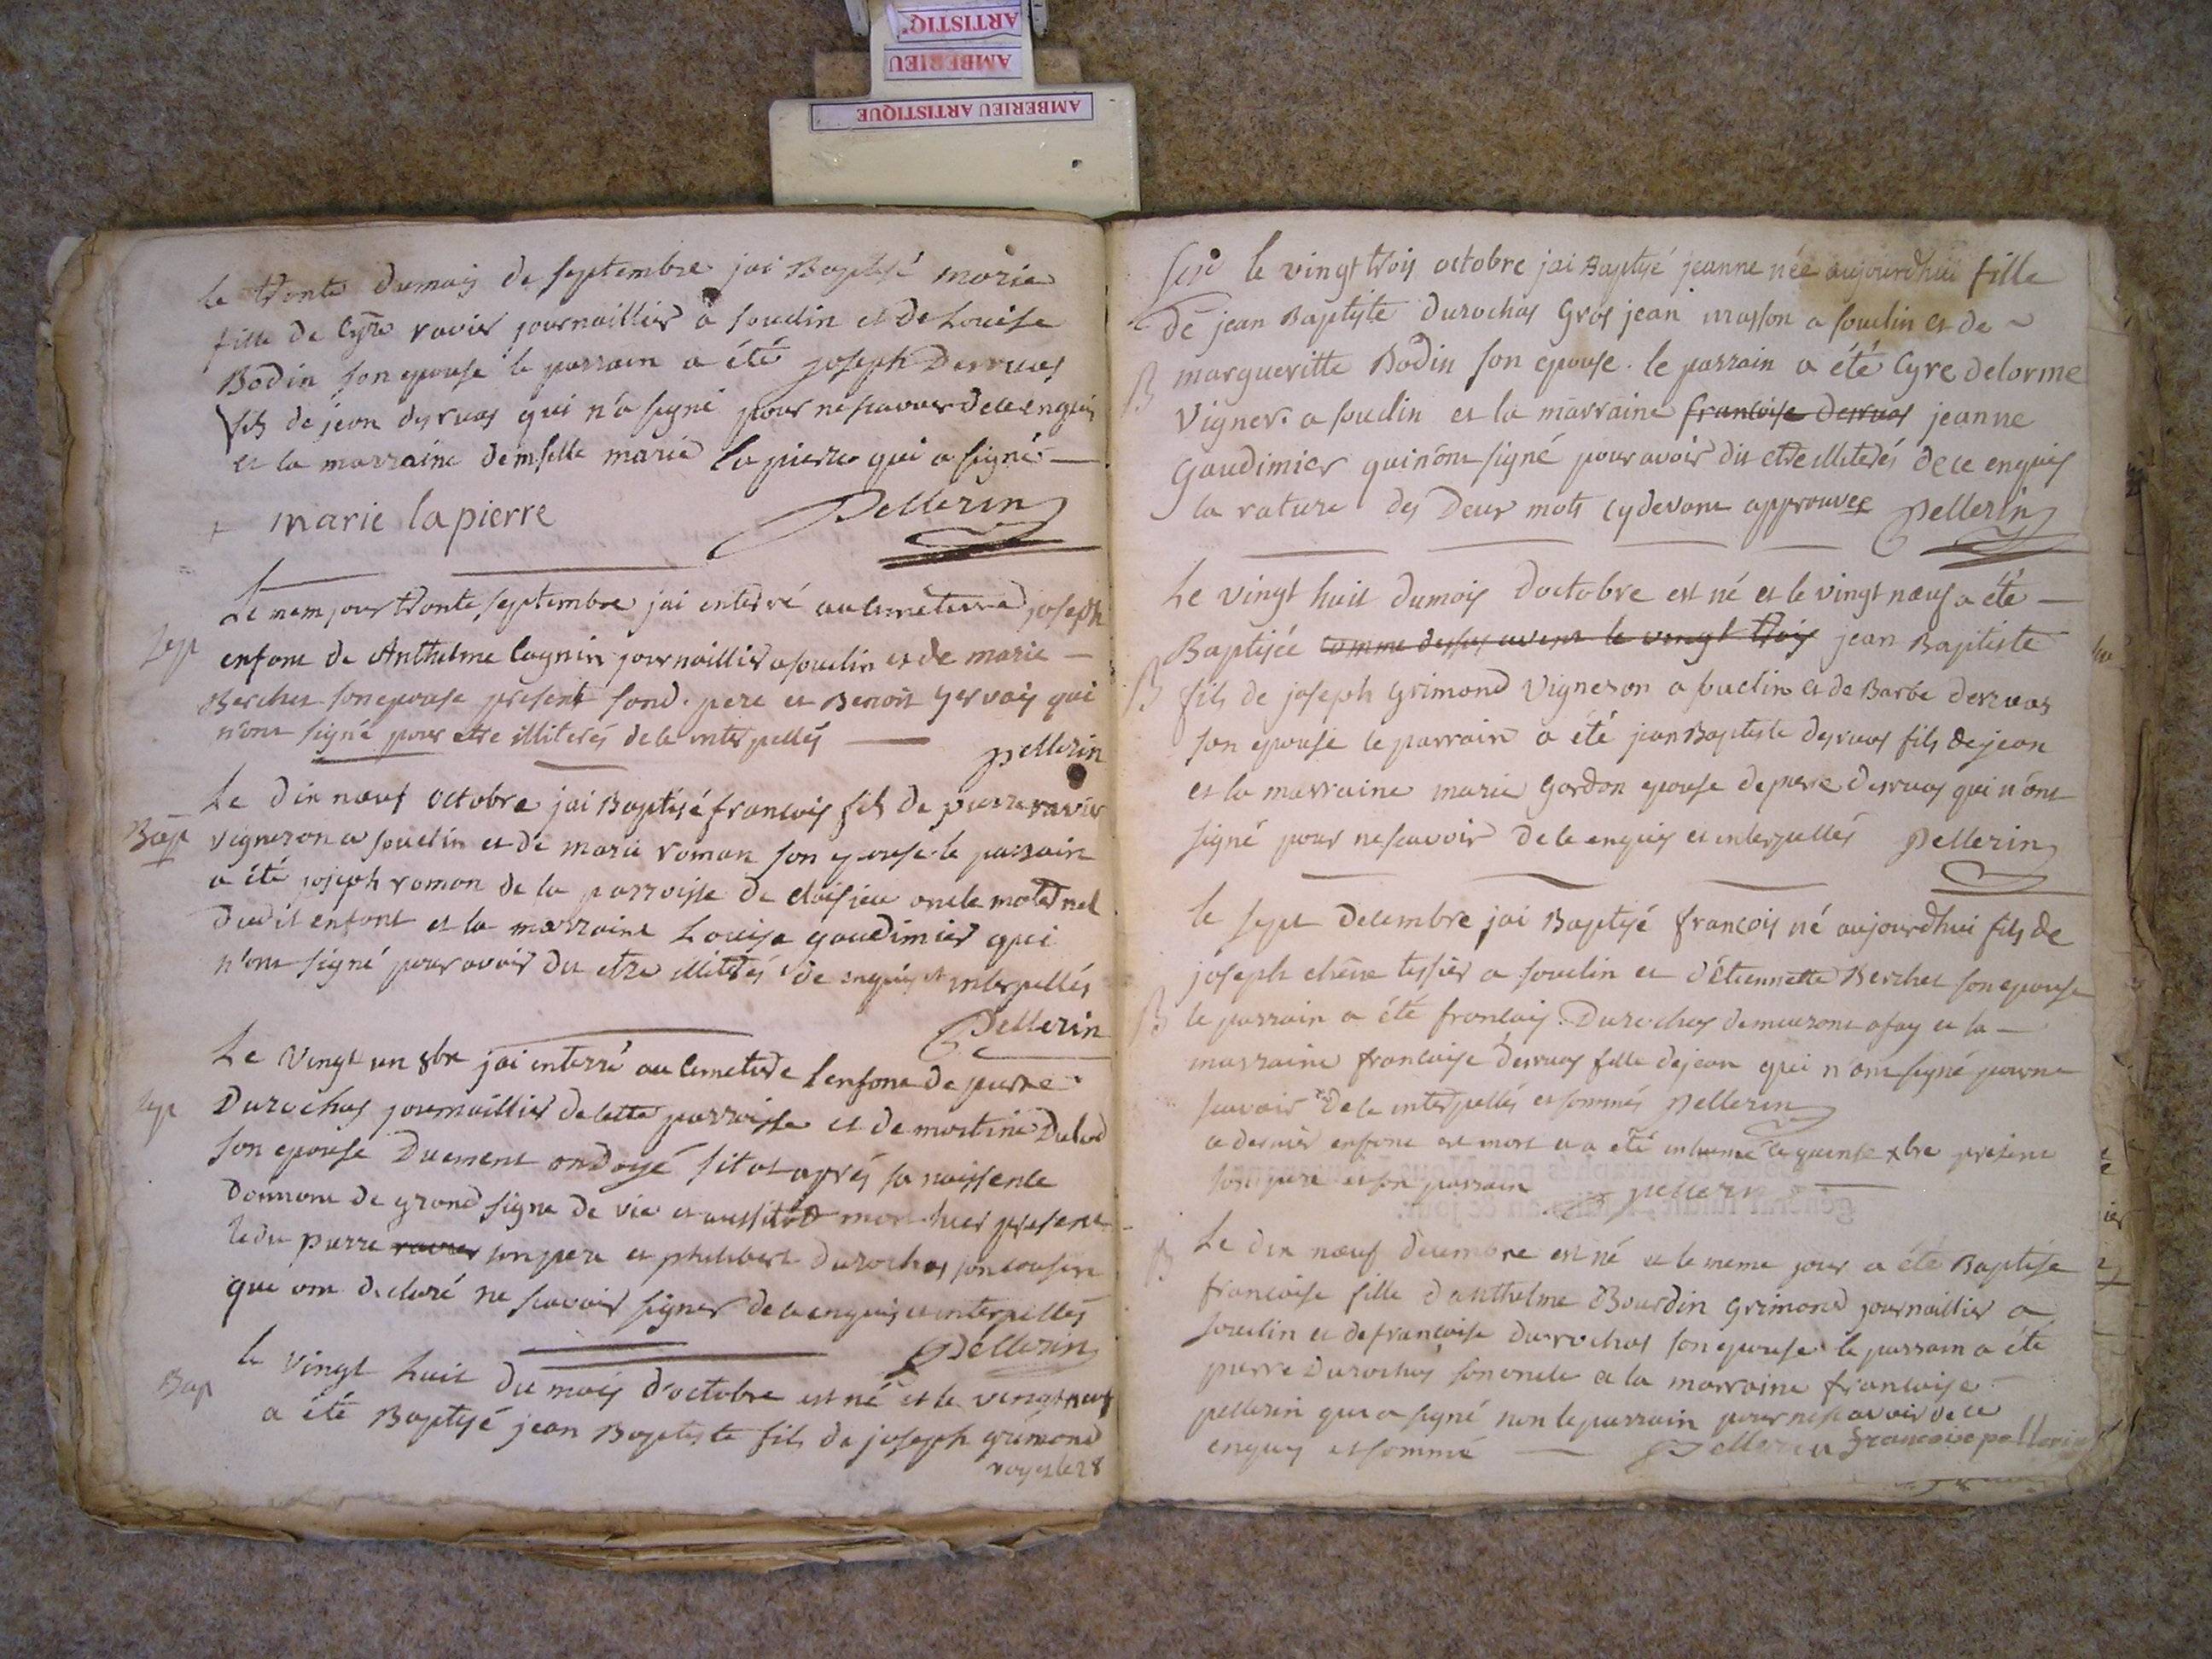 ARTISTIQ'
AMBERIEU
AMBERIEU ARTISTIQUE
le trente dumois de septembre jai Baptisé marie
fille de Cyre ravier journaillier a soudin et de Louise
Bodin son epouse le parrain a été joseph Derruas
fils de jean derruas qui n'a signé pour ne scavoir de ce enquis
et la marraine demselle marie la pierre qui a signé
marie lapierre Pellerin
Le mem jour trente septembre jai enterré au cimeterre joseph
Sep
enfant de Anthelme Cagnin journaillier a souclin et de marie
Berchet son epouse present sond. pere et Benoit gervais qui
n'ont signé pour etre illiterés de ce interpellés
pellerin
Le dix nœuf octobre jai Baptisé francois fils de pierre ravier
Bap
vigneron a souclin et de marie roman son epouse le parrain
a été joseph roman de la parroisse de cleisieu oncle maternel
dudit enfant et la marraine Louise gaudimier qui
n'ont signé pour avoir dit etre illiterés de enquis et interpellés
Pellerin
Le vingt un 8bre jai enterré au cimetere lenfant de pierre
sep
Durochas journaillier de cette parroisse et de martine
son epouse Duement ondoyé sitot aprés sa naissence
donnant de grand signe de vie et aussitôt mort hier present
ledit pierre ravier son pere et philibert durochas son cousin
qui ont declaré ne scavoir signer de ce enquis et interpellés
Pellerin
le vingt huit du mois d'octobre est né et le vingt nœuf
Bap
a été Baptisé jean Baptiste fils de joseph grimond
voyes le 28
le vingt trois octobre jai Baptisé jeanne née aujourdhui fille
de jean Baptiste durochas Gros jean masson a souclin et de
B
margueritte Bodin son epouse. le parrain a été Cyre delorme
Vigner. a souclin et la marraine francoise derruas jeanne
Gaudimier qui n'ont signé pour avoir dit etre illiterés de ce enquis
la rature des Deux mots cy devant approuvee Pellerin
Le vingt huit dumois doctobre est né et le vingt nœuf a été
Baptisée comme dessus avent le vingt trois jean Baptiste
B
fils de joseph grimond Vigneron a souclin et de Barbe derruas
son epouse le parrain a été jean Baptiste derruas fils de jean
et la marraine marie Gordon epouse de pierre derruas qui n'ont
signé pour ne scavoir de ce enquis et interpellés Pellerin
le sept decembre jai Baptisé francois né aujourdhui fils de
joseph chêne tessier a souclin et d'Etiennette Berchet son epouse
B
le parrain a été francois Durochas demeurant a fay et la
marraine francoise derruas fille de jean qui n'ont signé pour ne
scavoir de ce interpellés et sommés pellerin
ce dernier enfant est mort et a été inhumé le quinse xbre present
son pere et son parrain pellerin
Le dix nœuf decembre est né et le meme jour a été Baptise
B
francoise fille danthelme Bourdin grimond journaillier a
souclin et de francoise durochas son epouse le parrain a été
pierre Durochas son oncle et la marraine francoise
pellerin qui a signé non le parrain pour ne scavoir de ce
enquis et sommé Pellerin francoise pellerin